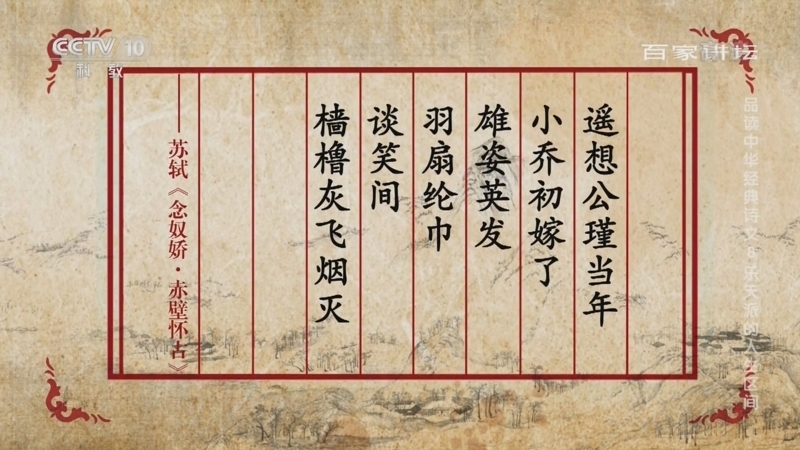 CCTV 10
科教
百家讲坛
遥想公瑾当年
小乔初嫁了
雄姿英发
羽扇纶巾
谈笑间
樯橹灰飞烟灭
——苏轼《念奴娇·赤壁怀古》
品读中华经典诗文 8 乐天派的人生区间